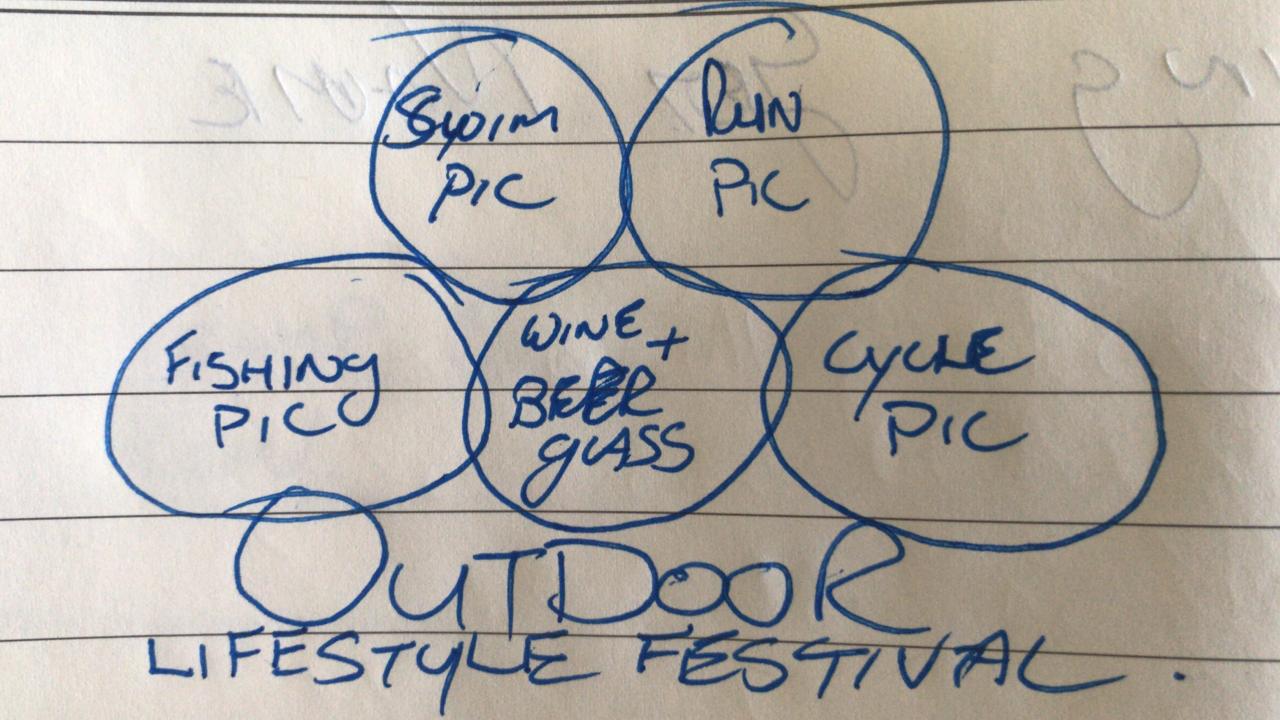 SWIM
PIC
RUN
PIC
FISHING
PIC
WINE +
BEER
GLASS
CYCLE
PIC
OUTDOOR
LIFESTYLE FESTIVAL.